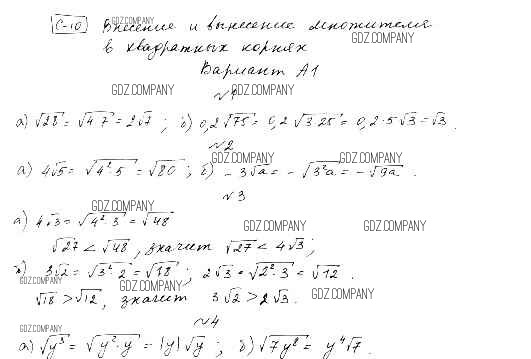 С-10 Внесение и вынесение множителя
в квадратных корнях
Вариант А1
№1
а) √28 = √4·7 = 2√7 ; б) 0,2√75 = 0,2√3·25 = 0,2·5√3 = √3 .
№2
а) 4√5 = √4²·5 = √80 ; б) -3√a = -√3²a = -√9a .
№3
а) 4√3 = √4²·3 = √48
√27 < √48 , значит √27 < 4√3 ;
б) 3√2 = √3²·2 = √18 ; 2√3 = √2²·3 = √12 .
√18 > √12 , значит 3√2 > 2√3 .
№4
а) √y³ = √y²·y = |y|√y ; б) √7y⁸ = y⁴√7 .
GDZ.COMPANY
GDZ.COMPANY
GDZ.COMPANY
GDZ.COMPANY
GDZ.COMPANY
GDZ.COMPANY
GDZ.COMPANY
GDZ.COMPANY
GDZ.COMPANY
GDZ.COMPANY
GDZ.COMPANY
GDZ.COMPANY
GDZ.COMPANY